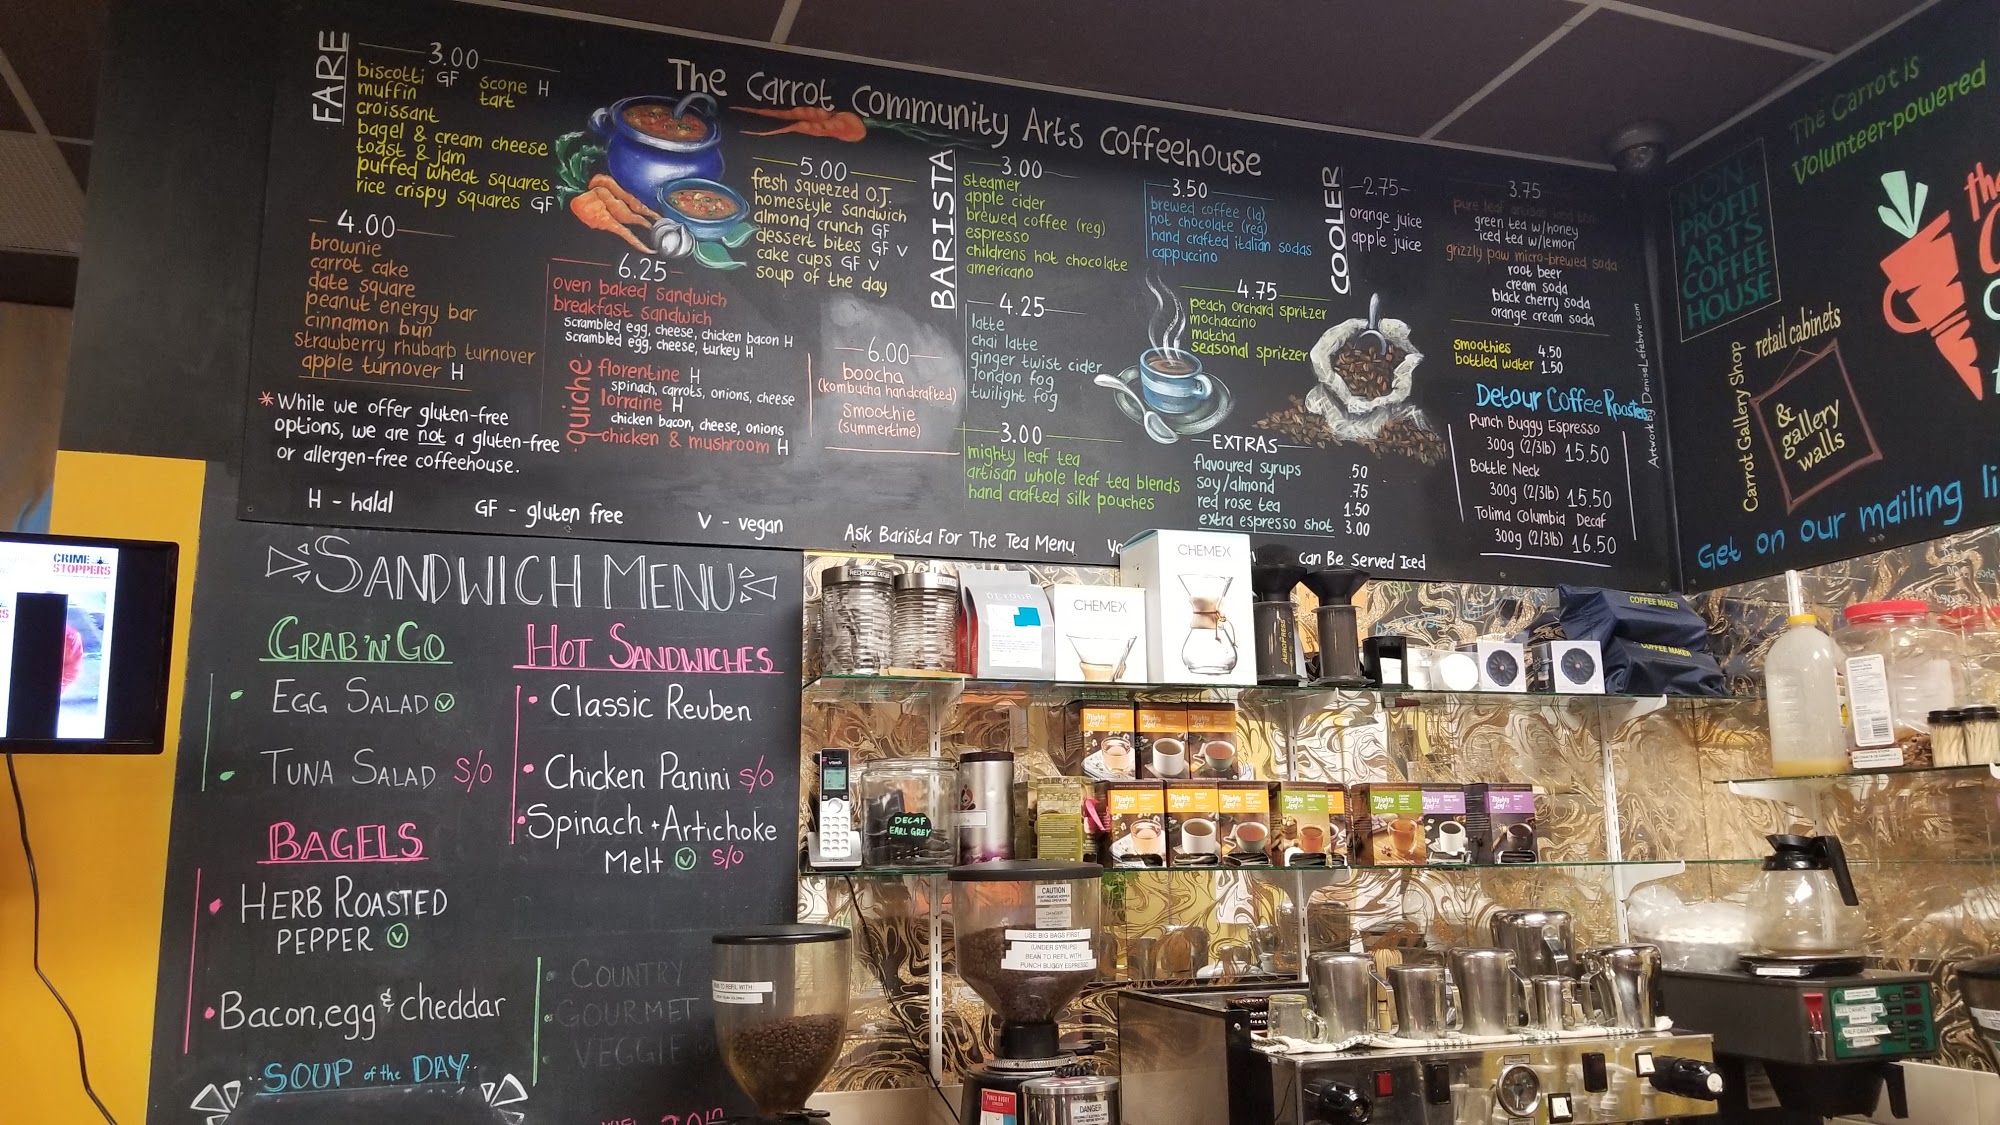 The Carrot Community Arts Coffeehouse
FARE
3.00
biscotti GF
scone H
muffin
tart
croissant
bagel & cream cheese
toast & jam
puffed wheat squares
rice crispy squares GF
4.00
brownie
carrot cake
date square
peanut energy bar
cinnamon bun
strawberry rhubarb turnover
apple turnover H
*While we offer gluten-free
options, we are not a gluten-free
or allergen-free coffeehouse.
H - halal
GF - gluten free
V - vegan
5.00
fresh squeezed O.J.
homestyle sandwich
almond crunch GF
dessert bites GF V
cake cups GF V
soup of the day
6.25
oven baked sandwich
breakfast sandwich
scrambled egg, cheese, chicken bacon H
scrambled egg, cheese, turkey H
quiche
florentine H
spinach, carrots, onions, cheese
lorraine H
chicken bacon, cheese, onions
chicken & mushroom H
6.00
boocha
(kombucha handcrafted)
smoothie
(summertime)
BARISTA
3.00
steamer
apple cider
brewed coffee (reg)
espresso
childrens hot chocolate
americano
3.50
brewed coffee (lg)
hot chocolate (reg)
hand crafted italian sodas
cappuccino
4.25
latte
chai latte
ginger twist cider
london fog
twilight fog
4.75
peach orchard spritzer
mochaccino
matcha
seasonal spritzer
3.00
mighty leaf tea
artisan whole leaf tea blends
hand crafted silk pouches
EXTRAS
flavoured syrups .50
soy/almond .75
red rose tea 1.50
extra espresso shot 3.00
Ask Barista For The Tea Menu
can Be Served Iced
COOLER
2.75
orange juice
apple juice
3.75
pure leaf
green tea w/honey
iced tea w/lemon
grizzly paw micro-brewed soda
root beer
cream soda
black cherry soda
orange cream soda
smoothies 4.50
bottled water 1.50
Detour Coffee Roasters
Punch Buggy Espresso
300g (2/3lb) 15.50
Bottle Neck
300g (2/3lb) 15.50
Tolima Columbia Decaf
300g (2/3lb) 16.50
Artwork by Denise Lefebvre.com
The Carrot is
Volunteer-powered
NON
PROFIT
ARTS
COFFEE
HOUSE
the
Carrot Gallery Shop
retail cabinets
& gallery
walls
Get on our mailing li
CRIME
STOPPERS
SANDWICH MENU
GRAB 'N' GO
EGG SALAD V
TUNA SALAD S/O
BAGELS
HERB ROASTED
PEPPER V
Bacon, egg & cheddar
SOUP of the DAY
HOT SANDWICHES
Classic Reuben
Chicken Panini S/O
Spinach + Artichoke
Melt V S/O
COUNTRY
GOURMET
VEGGIE
CHEMEX
CHEMEX
AEROPRESS
COFFEE MAKER
COFFEE MAKER
DECAF
EARL GREY
Mighty Leaf
CAUTION
DANGER
USE BIG BAGS FIRST
(UNDER SYRUPS)
BEAN TO REFIL WITH
PUNCH BUGGY ESPRESSO
BEAN TO REFIL WITH
DANGER